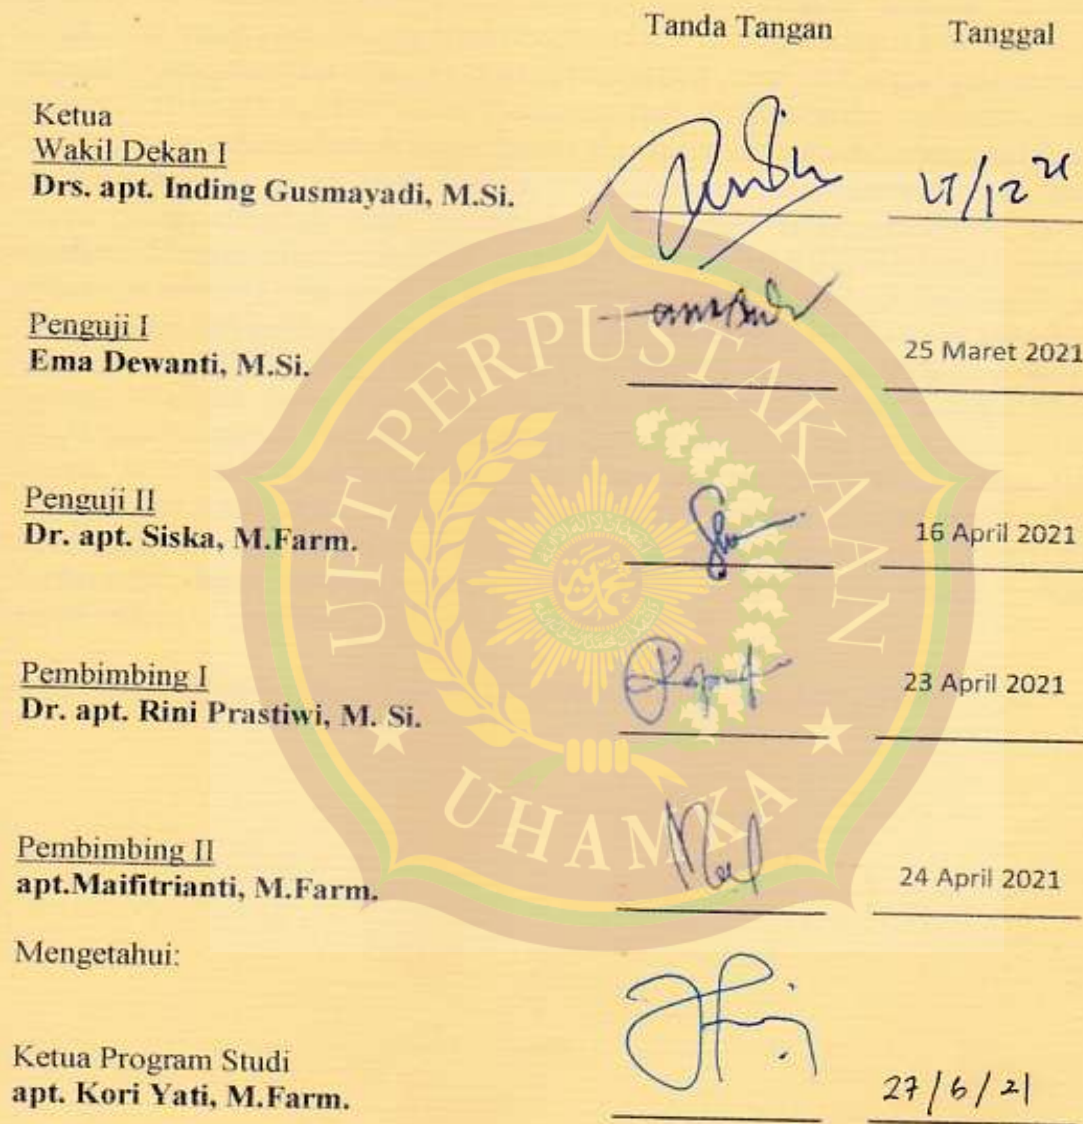 Tanda Tangan Tanggal
Ketua
Wakil Dekan I
Drs. apt. Inding Gusmayadi, M.Si.
/12 21
Penguji I
Ema Dewanti, M.Si.
25 Maret 2021
Penguji II
Dr. apt. Siska, M.Farm.
16 April 2021
Pembimbing I
Dr. apt. Rini Prastiwi, M. Si.
23 April 2021
Pembimbing II
apt.Maifitrianti, M.Farm.
24 April 2021
Mengetahui:
Ketua Program Studi
apt. Kori Yati, M.Farm.
27/6/21
UPT PERPUSTAKAAN
UHAMKA